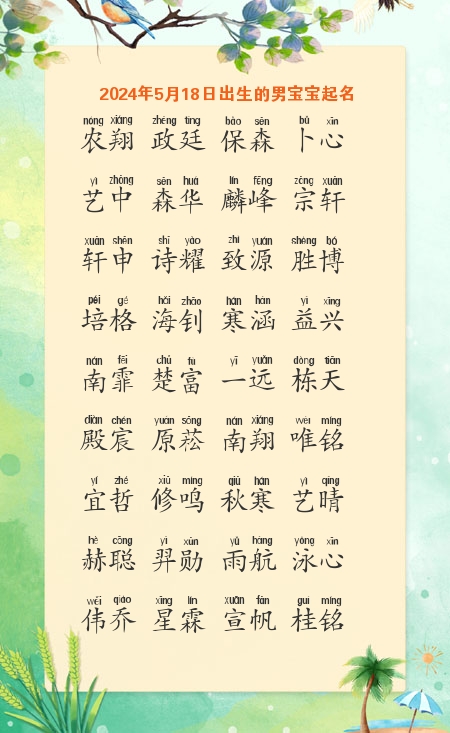 2024年5月18日出生的男宝宝起名
nóng xiáng zhèng tíng bǎo sēn bǔ xīn
农翔 政廷 保森 卜心
yì zhōng sēn huá lín fēng zōng xuān
艺中 森华 麟峰 宗轩
xuān shēn shī yào zhì yuán shèng bó
轩申 诗耀 致源 胜博
péi gé hǎi zhāo hán hán yì xīng
培格 海钊 寒涵 益兴
nán fēi chǔ fù yī yuǎn dòng tiān
南霏 楚富 一远 栋天
diàn chén yuán sōng nán xiáng wéi míng
殿宸 原菘 南翔 唯铭
yí zhé xiū míng qiū hán yì qíng
宜哲 修鸣 秋寒 艺晴
hè cōng yì xūn yǔ háng yǒng xīn
赫聪 羿勋 雨航 泳心
wěi qiáo xīng lín xuān fān guì míng
伟乔 星霖 宣帆 桂铭